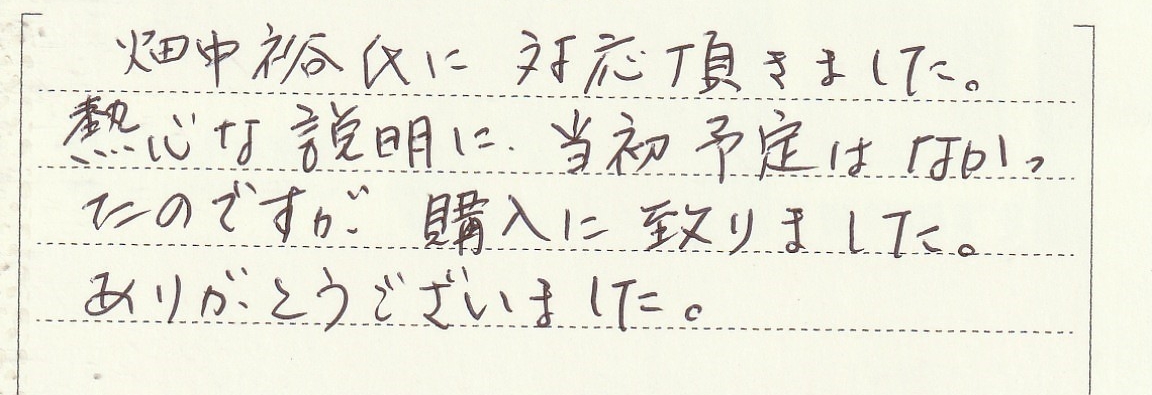 畑中裕氏に 対応頂きました。
熱心な説明に、当初予定はなかっ
たのですが、購入に致りました。
ありがとうございました。